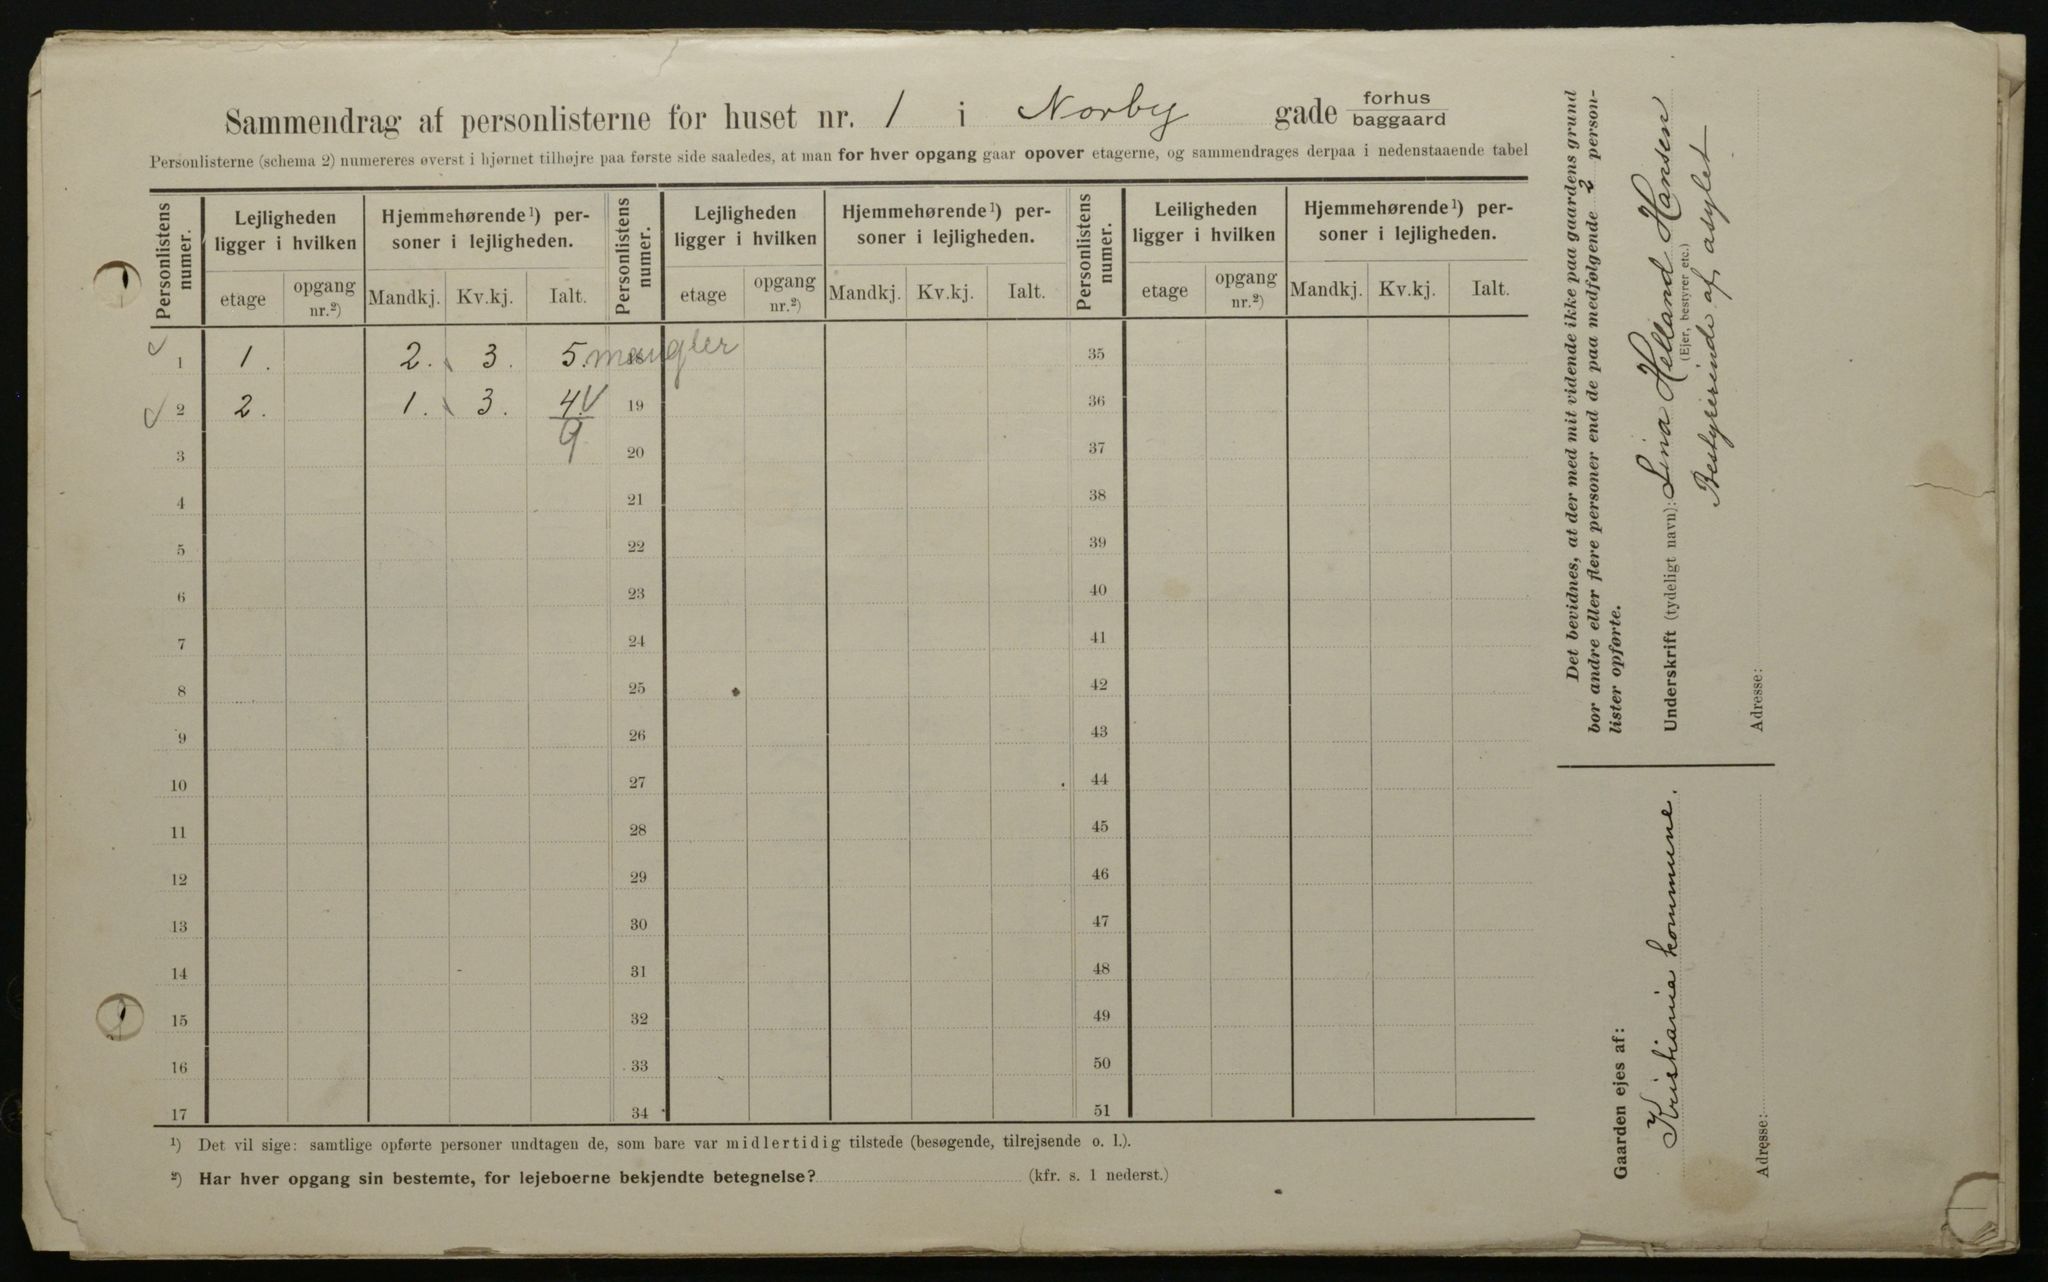 Sammendrag af personlisterne for huset nr. 1 i Norby gade forhus baggaard
Personlisterne (schema 2) numereres øverst i hjørnet tilhøjre paa første side saaledes, at man for hver opgang gaar opover etagerne, og sammendrages derpaa i nedenstaaende tabel
Personlistens numer. Lejligheden ligger i hvilken Hjemmehørende¹) personer i lejligheden. Personlistens numer. Lejligheden ligger i hvilken Hjemmehørende¹) personer i lejligheden. Personlistens numer. Leiligheden ligger i hvilken Hjemmehørende¹) personer i lejligheden.
etage opgang nr.²) Mandkj. Kv.kj. Ialt. etage opgang nr.²) Mandkj. Kv.kj. Ialt. etage opgang nr.²) Mandkj. Kv.kj. Ialt.
1 1. 2. 3. 5. mangler 18 35
2 2. 1. 3. 4. 19 36
9
3 20 37
4 21 38
5 22 39
6 23 40
7 24 41
8 25 42
9 26 43
10 27 44
11 28 45
12 29 46
13 30 47
14 31 48
15 32 49
16 33 50
17 34 51
¹) Det vil sige: samtlige opførte personer undtagen de, som bare var midlertidig tilstede (besøgende, tilrejsende o. l.).
²) Har hver opgang sin bestemte, for lejeboerne bekjendte betegnelse? (kfr. s. 1 nederst.)
Det bevidnes, at der med mit vidende ikke paa gaardens grund
bor andre eller flere personer end de paa medfølgende 2 person-
lister opførte.
Underskrift (tydeligt navn): Lina Helland Hansen
(Ejer, bestyrer etc.)
Bestyrerinde af asylet
Adresse:
Gaarden ejes af:
Kristiania kommune.
Adresse: